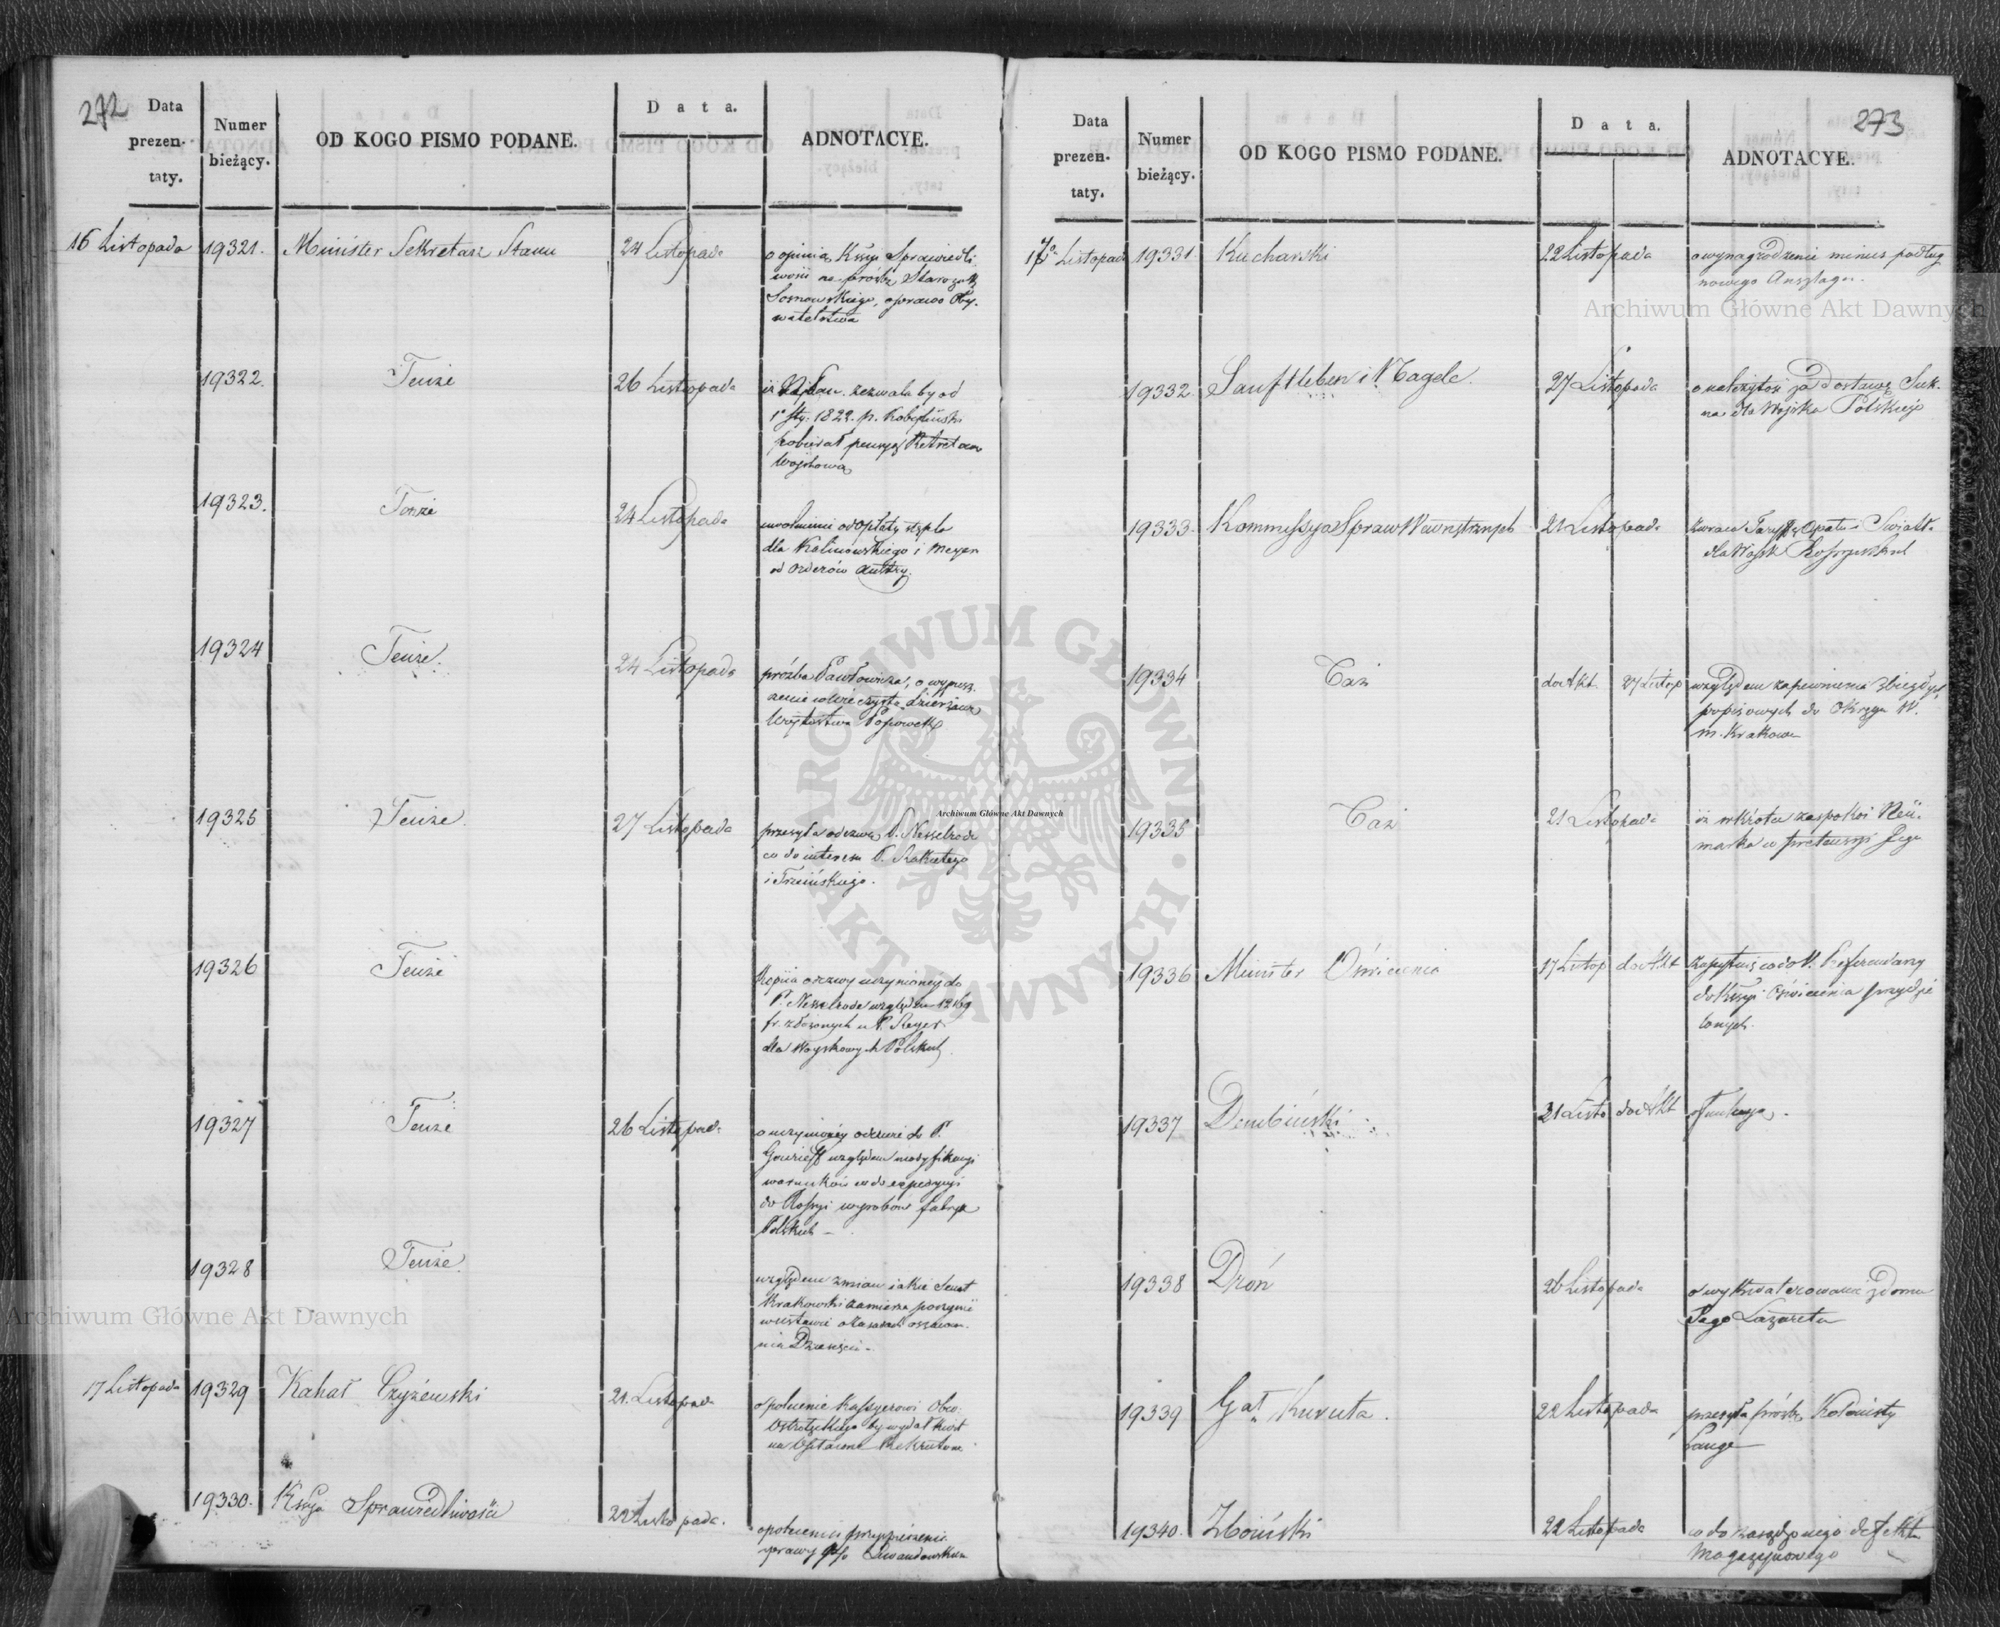 272
Data
prezen-
taty.
Numer
bieżący.
OD KOGO PISMO PODANE.
Data.
ADNOTACYE.
16 Listopada 19321. Minister Sekretarz Stanu 24 Listopada
o opinią Kssyi Sprawiedli
wości na prośbę Starozak
Sosnowskiego, o prawo Oby-
watelstwa
19322. Tenże 26 Listopada
iż zezwala by od
1° Sty. 1822. p. Kobyliński
pobierał pensyą
19323. Tenże 24 Listopada
uwolnienie od opłaty stępla
dla Kalinowskiego i Meyer
od orderów Austry.
19324 Tenże. 24 Listopada
prośba Pawłowicza, o wypusz
czenie w wieczystą dzierżawę
Wójtostwa
19325 Tenże. 27 Listopada
przesyła odezwę P. Nesselrode
co do interesu P. Rakietego
i Trzcińskiego.
19326 Tenże
Kopiia odezwy uczynioney do
P. Nesselrode względem
fr. złożonych u P. Reyer
dla Woyskowych Polskich.
19327 Tenże 26 Listopada
o uczynioney odezwie do P.
Gourieff względem modyfikacyi
warunków co do expedycyi
do Rossyi wyrobów fabryk
Polskich —
19328 Tenże.
względem zmian iakie Senat
Krakowski zamierza poczynić
w ustawie
17 Listopada 19329 Kahał Czyżewski 21. Listopada
o polecenie Kassyerowi Obw:
Ostrołęckiego by wydał kwit
na Rekrutowe
19330. Kssyja Sprawiedliwości 22 Listopada.
o polecenie przyspieszenia
sprawy Lewandowskim
273
Data
prezen-
taty.
Numer
bieżący.
OD KOGO PISMO PODANE.
Data.
ADNOTACYE.
17 Listopad 19331 Kucharski 22 Listopada
o wynagrodzenie minus podług
nowego Anszlagu.
19332. Sauftleben i Nagele. 27 Listopada
o należytość za dostawę Suk-
na dla Wojska Polskiego
19333. Kommissya Spraw Wewnętrznych 21 Listopada
zwraca Taryffę Opału i Światła
dla Wojsk Rossyjskich
19334 Taż do Akt. 27 Listop
względem zapewnienia zbiegłych
popisowych do Okręgu W.
m. Krakowa
19335 Taż 21 Listopada
iż wkrótce zaspokoi Neü-
marka w pretensyi Jego
19336 Minister Oświecenia 17 Listop do Akt
zapytuie co do
do Kssyi Oświecenia przydzie
lonych.
19337 Dembiński 21 Listo do Akt
19338 Droń 26 Listopada
o wykwaterowanie z domu
Jego Lazaretu
19339 Gał Kuruta. 22 Listopada
przesyła prośbę Kolonisty
Lange
19340. Zboiński 22 Listopada
co do zarządzonego defektu
Magazynowego
Archiwum Główne Akt Dawnych
Archiwum Główne Akt Dawnych
Archiwum Główne Akt Dawnych
ARCHIWUM GŁÓWNE AKT DAWNYCH